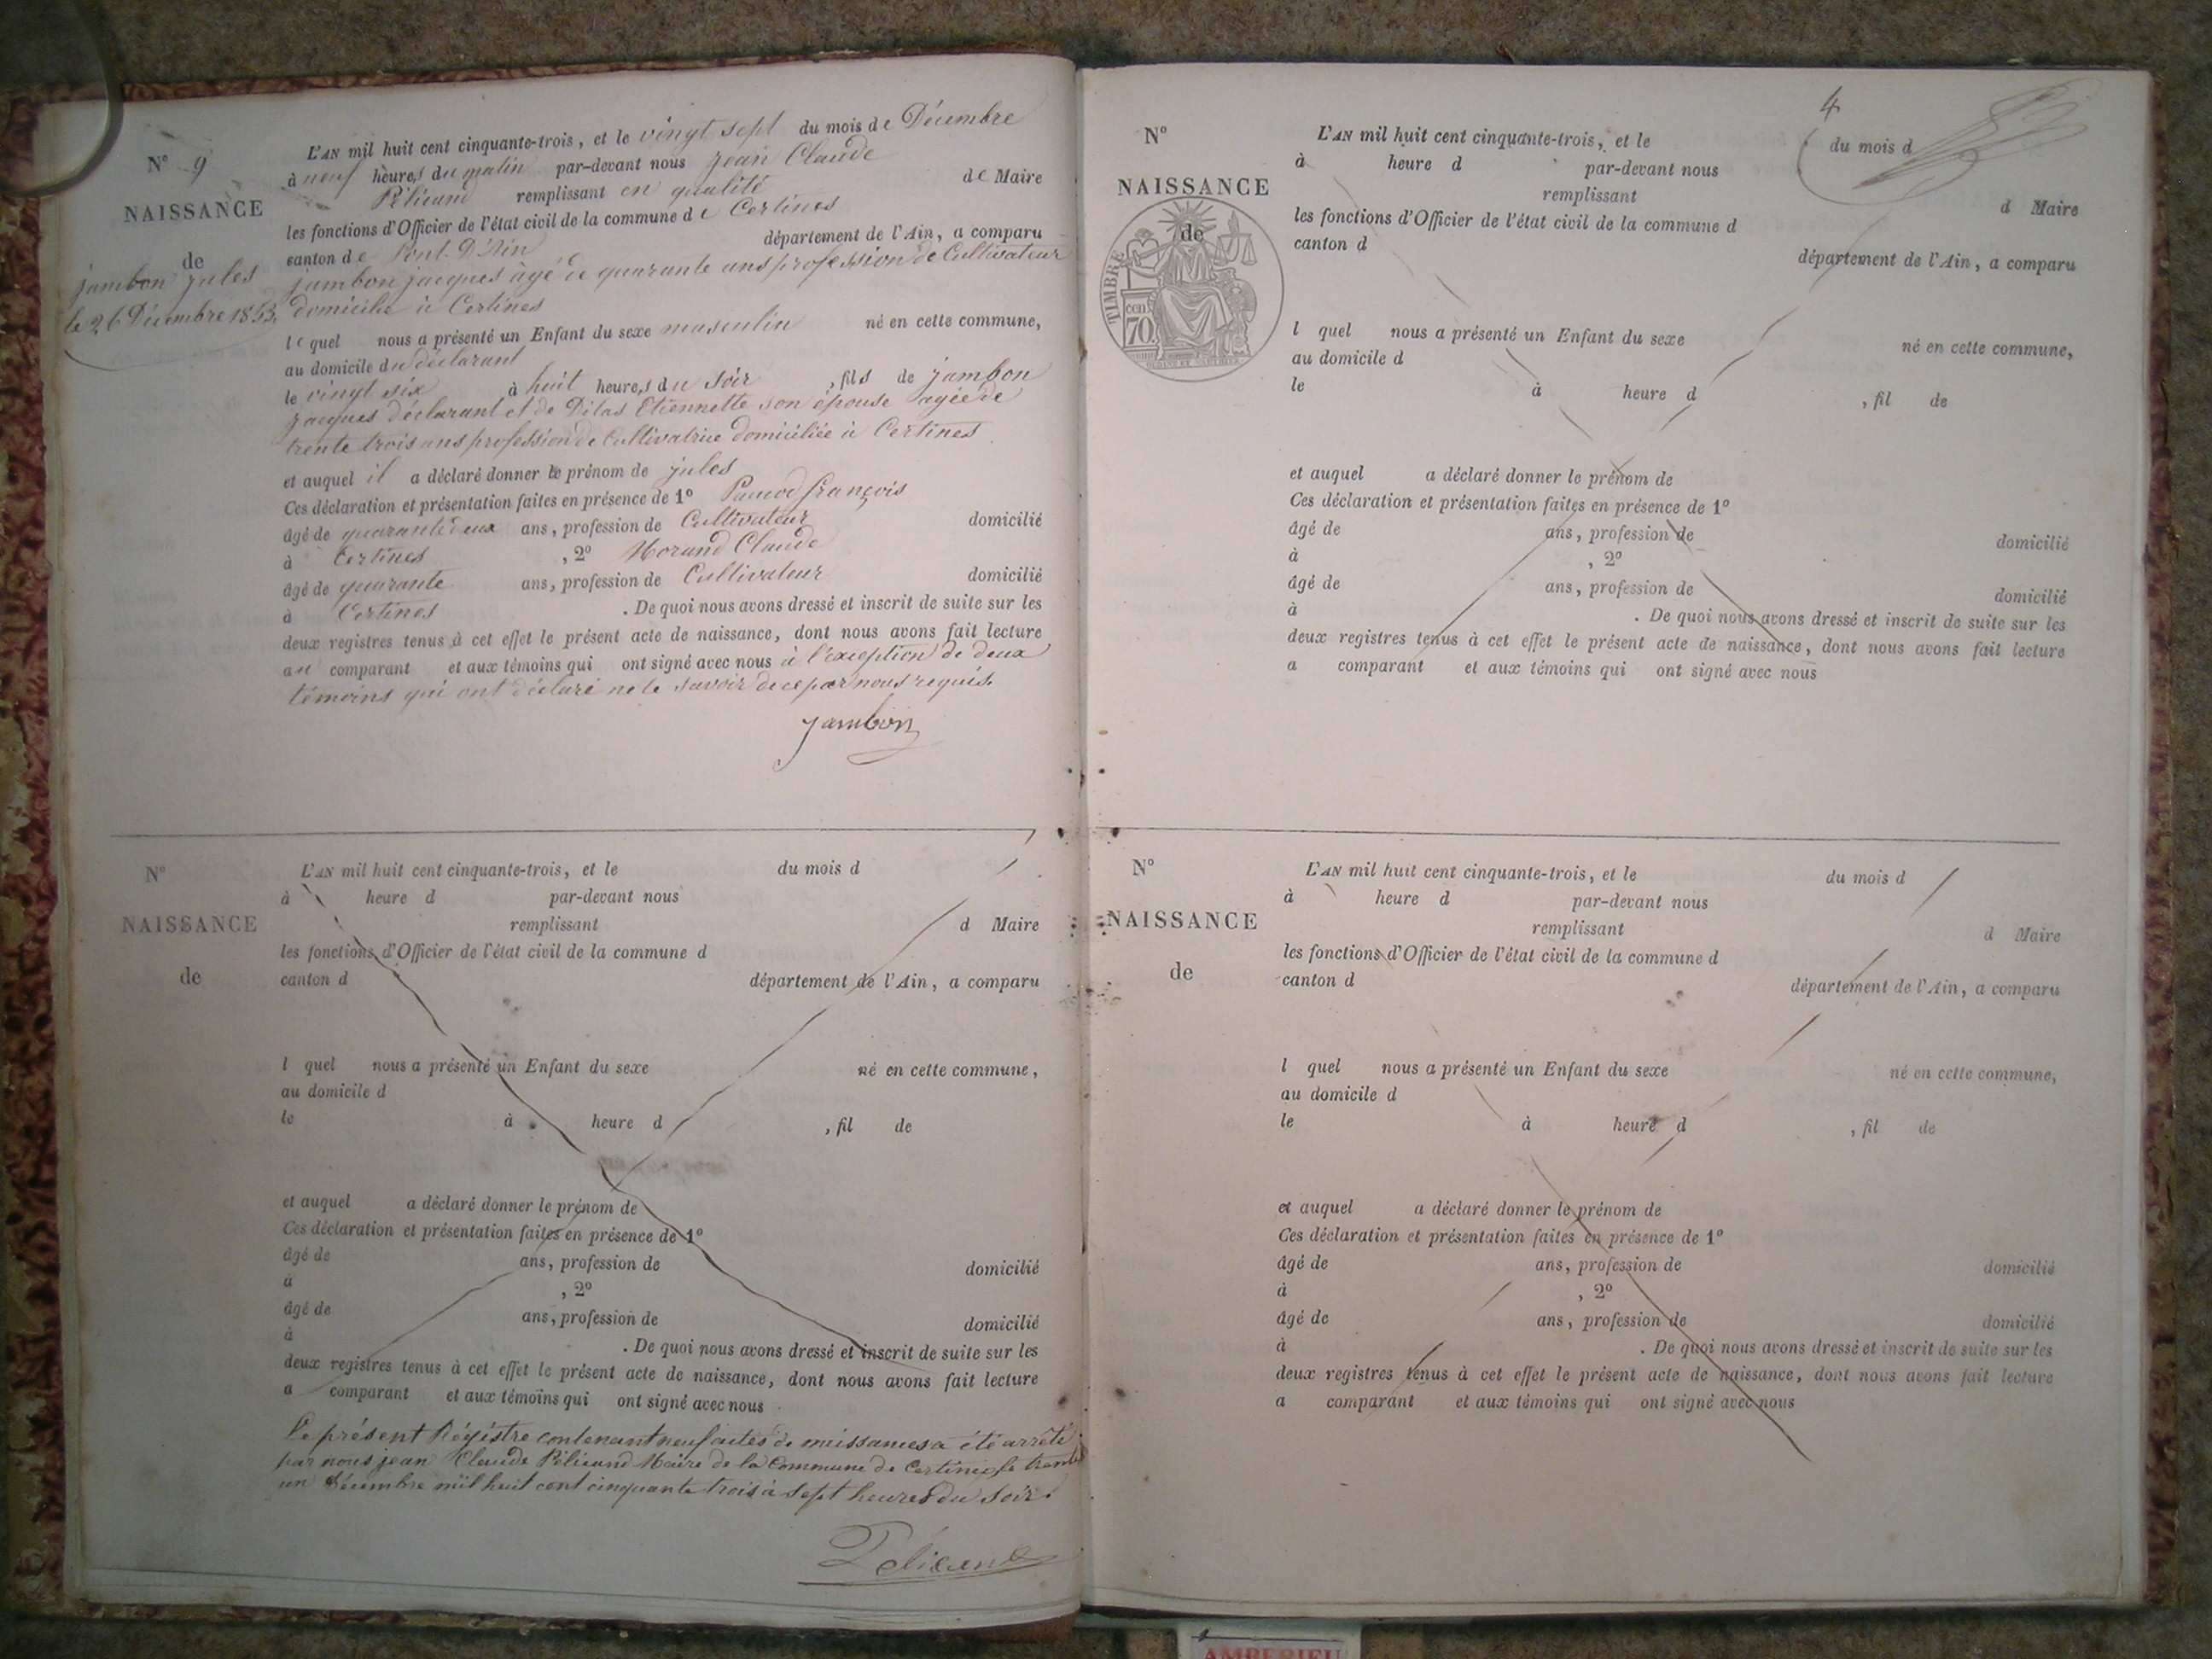 N° 9
NAISSANCE
de
jambon jules
le 26 Décembre 1853.
L'AN mil huit cent cinquante-trois, et le vingt sept du mois de Décembre
à neuf heures du matin par-devant nous Jean Claude
Pélicand remplissant en qualité de Maire
les fonctions d'Officier de l'état civil de la commune de Certines
canton de Pont-D'Ain département de l'Ain, a comparu
jambon jacques âgé de quarante ans profession de Cultivateur
domicilié à Certines
lequel nous a présenté un Enfant du sexe masculin né en cette commune,
au domicile du déclarant
le vingt six à huit heures du soir, fils de jambon
jacques déclarant et de Dilas Etiennette son épouse agée de
trente trois ans profession de Cultivatrice domiciliée à Certines
et auquel il a déclaré donner le prénom de jules
Ces déclaration et présentation faites en présence de 1° françois
âgé de quarante deux ans, profession de Cultivateur domicilié
à Certines, 2° Morand Claude
âgé de quarante ans, profession de Cultivateur domicilié
à Certines. De quoi nous avons dressé et inscrit de suite sur les
deux registres tenus à cet effet le présent acte de naissance, dont nous avons fait lecture
au comparant et aux témoins qui ont signé avec nous à l'exception de deux
témoins qui ont déclaré ne le savoir de ce par nous requis.
Jambon
N°
NAISSANCE
de
L'AN mil huit cent cinquante-trois, et le du mois d
à heure d par-devant nous
remplissant d Maire
les fonctions d'Officier de l'état civil de la commune d
canton d département de l'Ain, a comparu
l quel nous a présenté un Enfant du sexe né en cette commune,
au domicile d
le à heure d , fil de
et auquel a déclaré donner le prénom de
Ces déclaration et présentation faites en présence de 1°
âgé de ans, profession de domicilié
à , 2°
âgé de ans, profession de domicilié
à . De quoi nous avons dressé et inscrit de suite sur les
deux registres tenus à cet effet le présent acte de naissance, dont nous avons fait lecture
a comparant et aux témoins qui ont signé avec nous
Le présent Régistre contenant neuf actes de naissances a été arrêté
par nous jean Claude Pélicand Maire de la Commune de Certines le trente
un Décembre mil huit cent cinquante trois à sept heures du soir.
Pélicand
4
N°
NAISSANCE
de
TIMBRE
70
L'AN mil huit cent cinquante-trois, et le du mois d
à heure d par-devant nous
remplissant d Maire
les fonctions d'Officier de l'état civil de la commune d
canton d département de l'Ain, a comparu
l quel nous a présenté un Enfant du sexe né en cette commune,
au domicile d
le à heure d , fil de
et auquel a déclaré donner le prénom de
Ces déclaration et présentation faites en présence de 1°
âgé de ans, profession de domicilié
à , 2°
âgé de ans, profession de domicilié
à . De quoi nous avons dressé et inscrit de suite sur les
deux registres tenus à cet effet le présent acte de naissance, dont nous avons fait lecture
a comparant et aux témoins qui ont signé avec nous
N°
NAISSANCE
de
L'AN mil huit cent cinquante-trois, et le du mois d
à heure d par-devant nous
remplissant d Maire
les fonctions d'Officier de l'état civil de la commune d
canton d département de l'Ain, a comparu
l quel nous a présenté un Enfant du sexe né en cette commune,
au domicile d
le à heure d , fil de
et auquel a déclaré donner le prénom de
Ces déclaration et présentation faites en présence de 1°
âgé de ans, profession de domicilié
à , 2°
âgé de ans, profession de domicilié
à . De quoi nous avons dressé et inscrit de suite sur les
deux registres tenus à cet effet le présent acte de naissance, dont nous avons fait lecture
a comparant et aux témoins qui ont signé avec nous
AMBERIEU